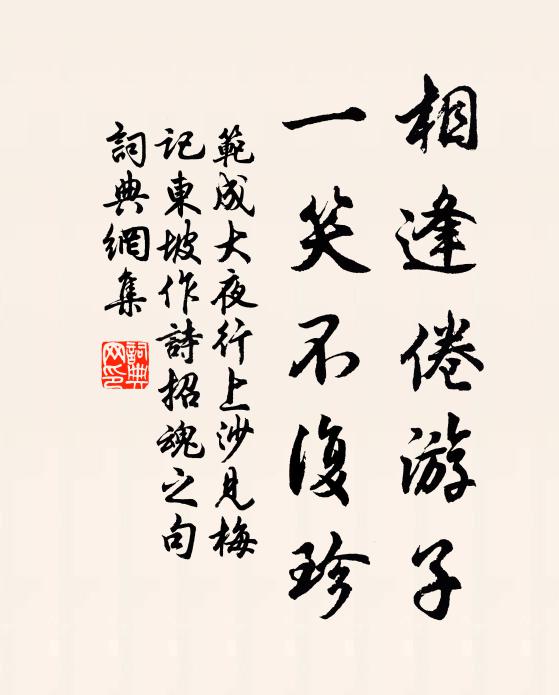 相逢倦游子
一笑不復珍
範成大夜行上沙見梅
記東坡作詩招魂之句
詞典網集
詞典
网印